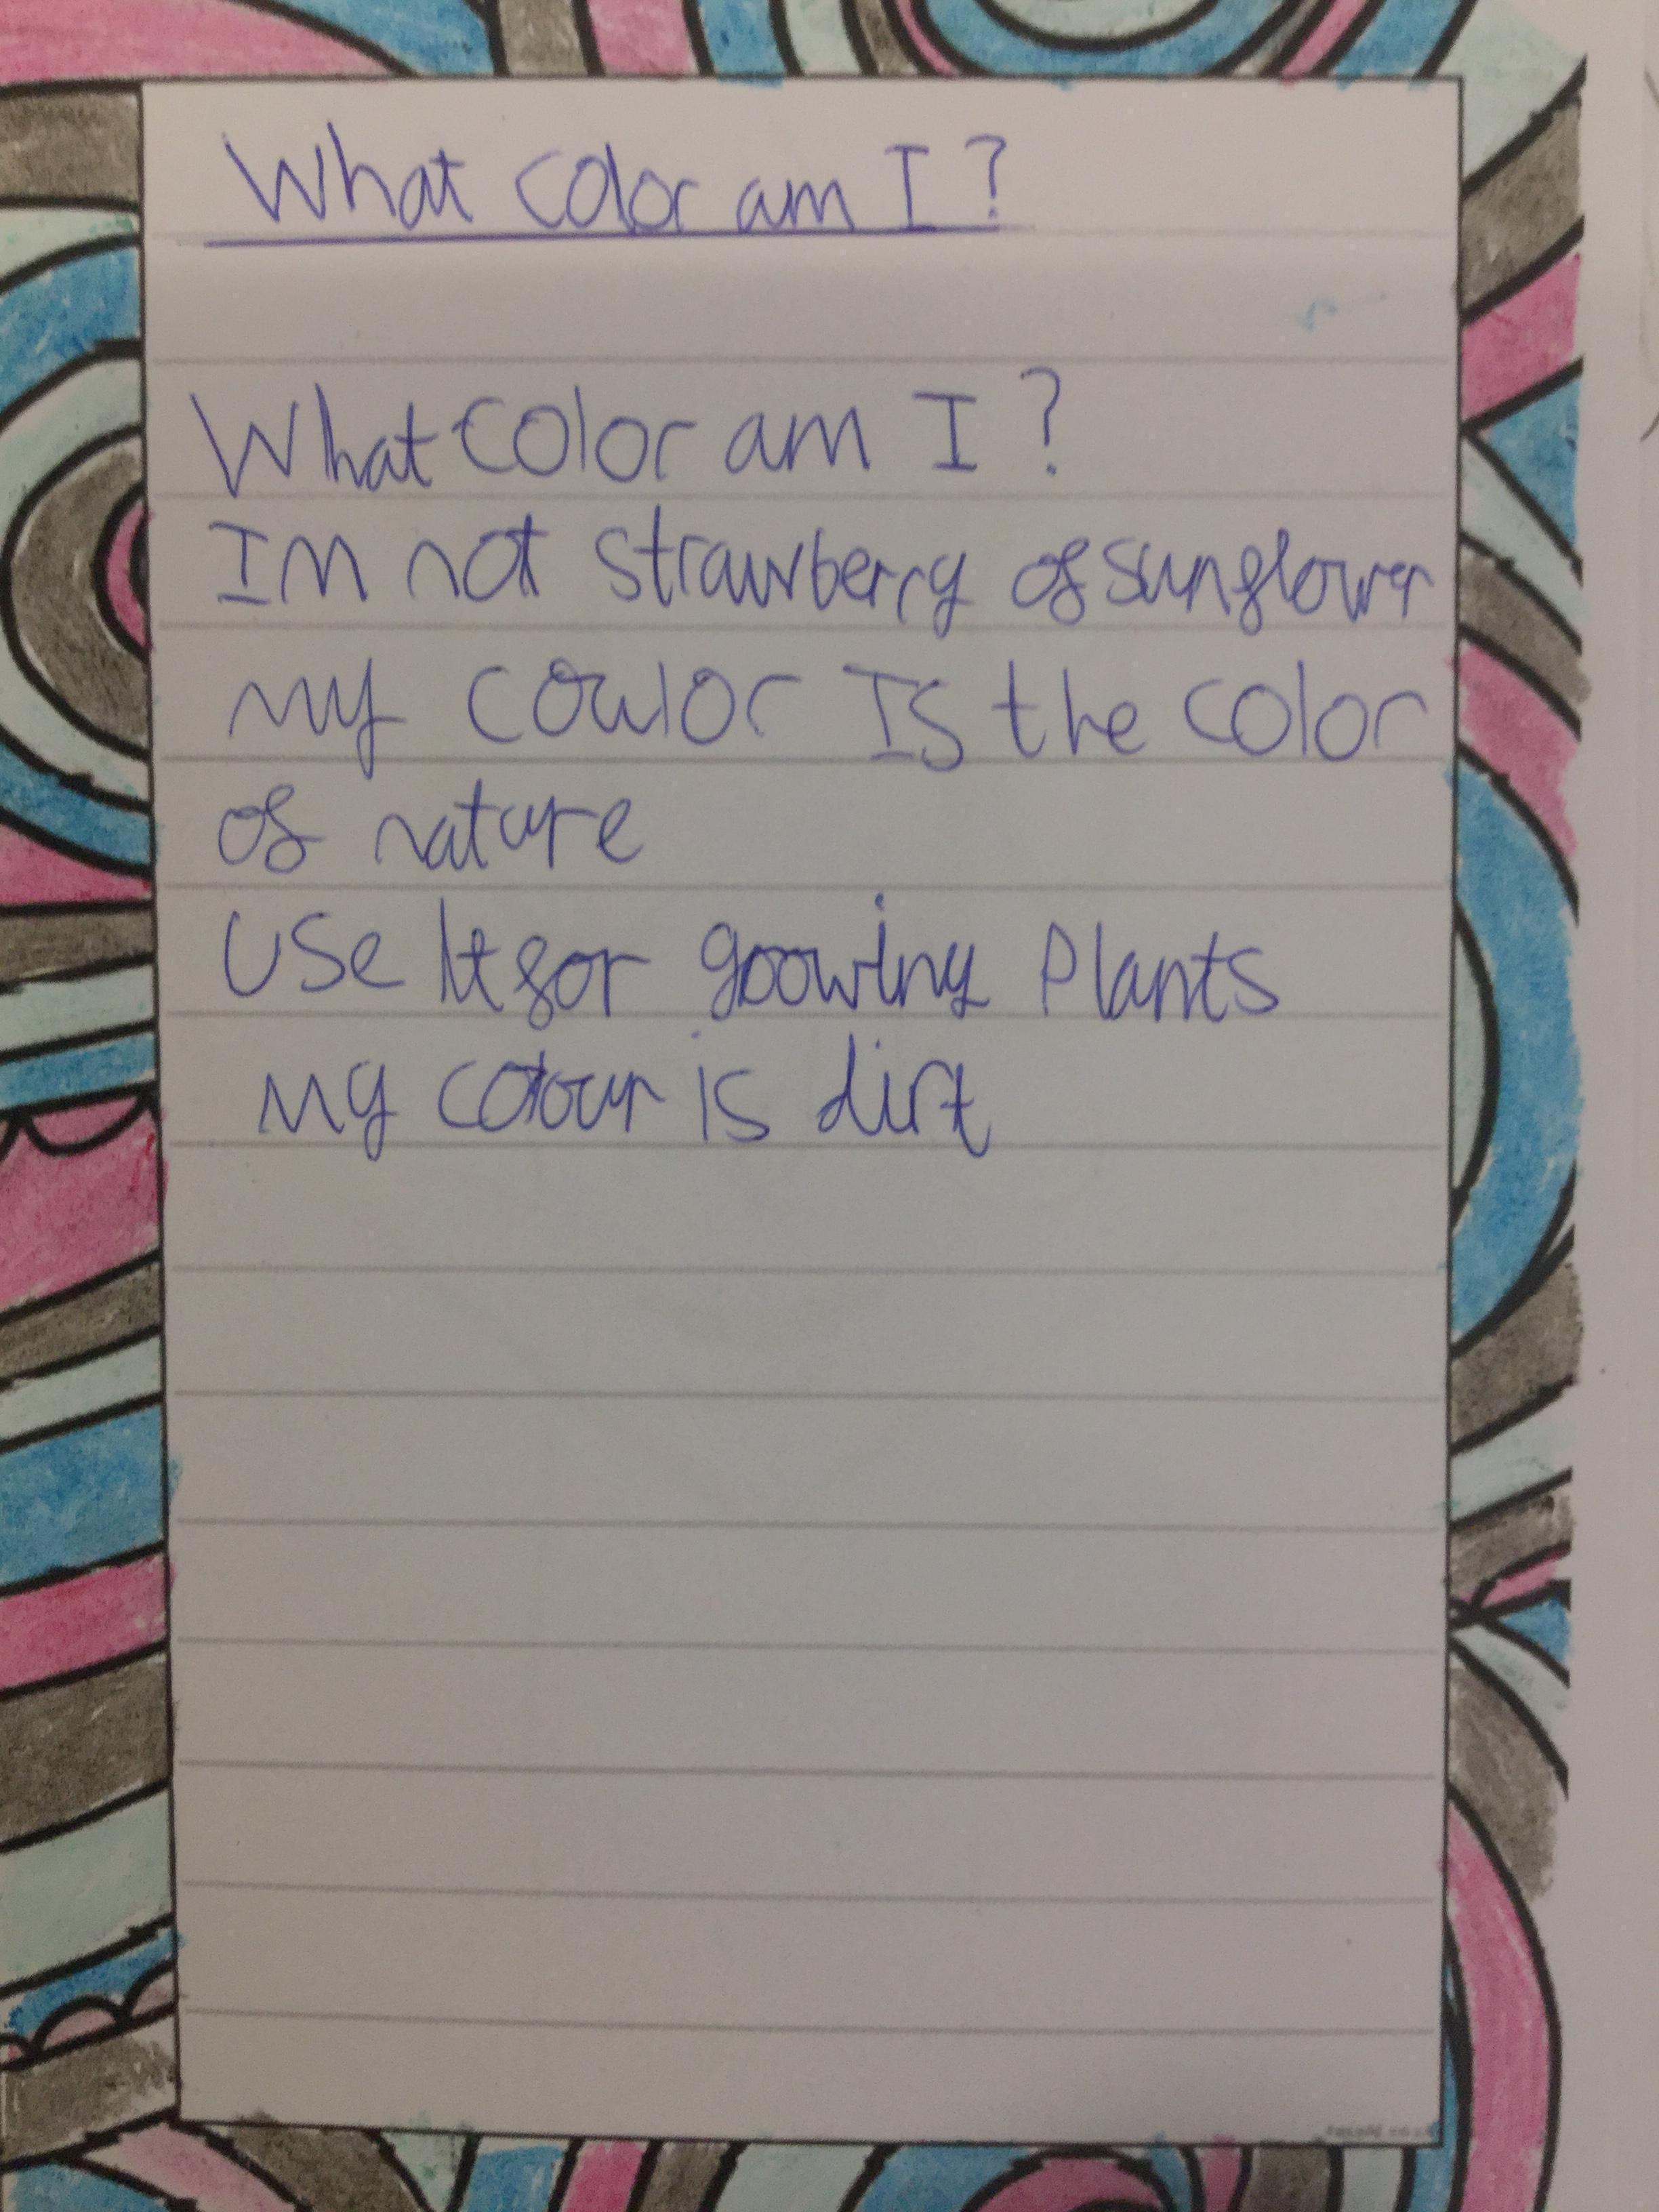 What color am I?
What color am I?
Im not strawberry of sunflower
my coulor Is the color
of nature
Use It for goowing Plants
my colour is dirt